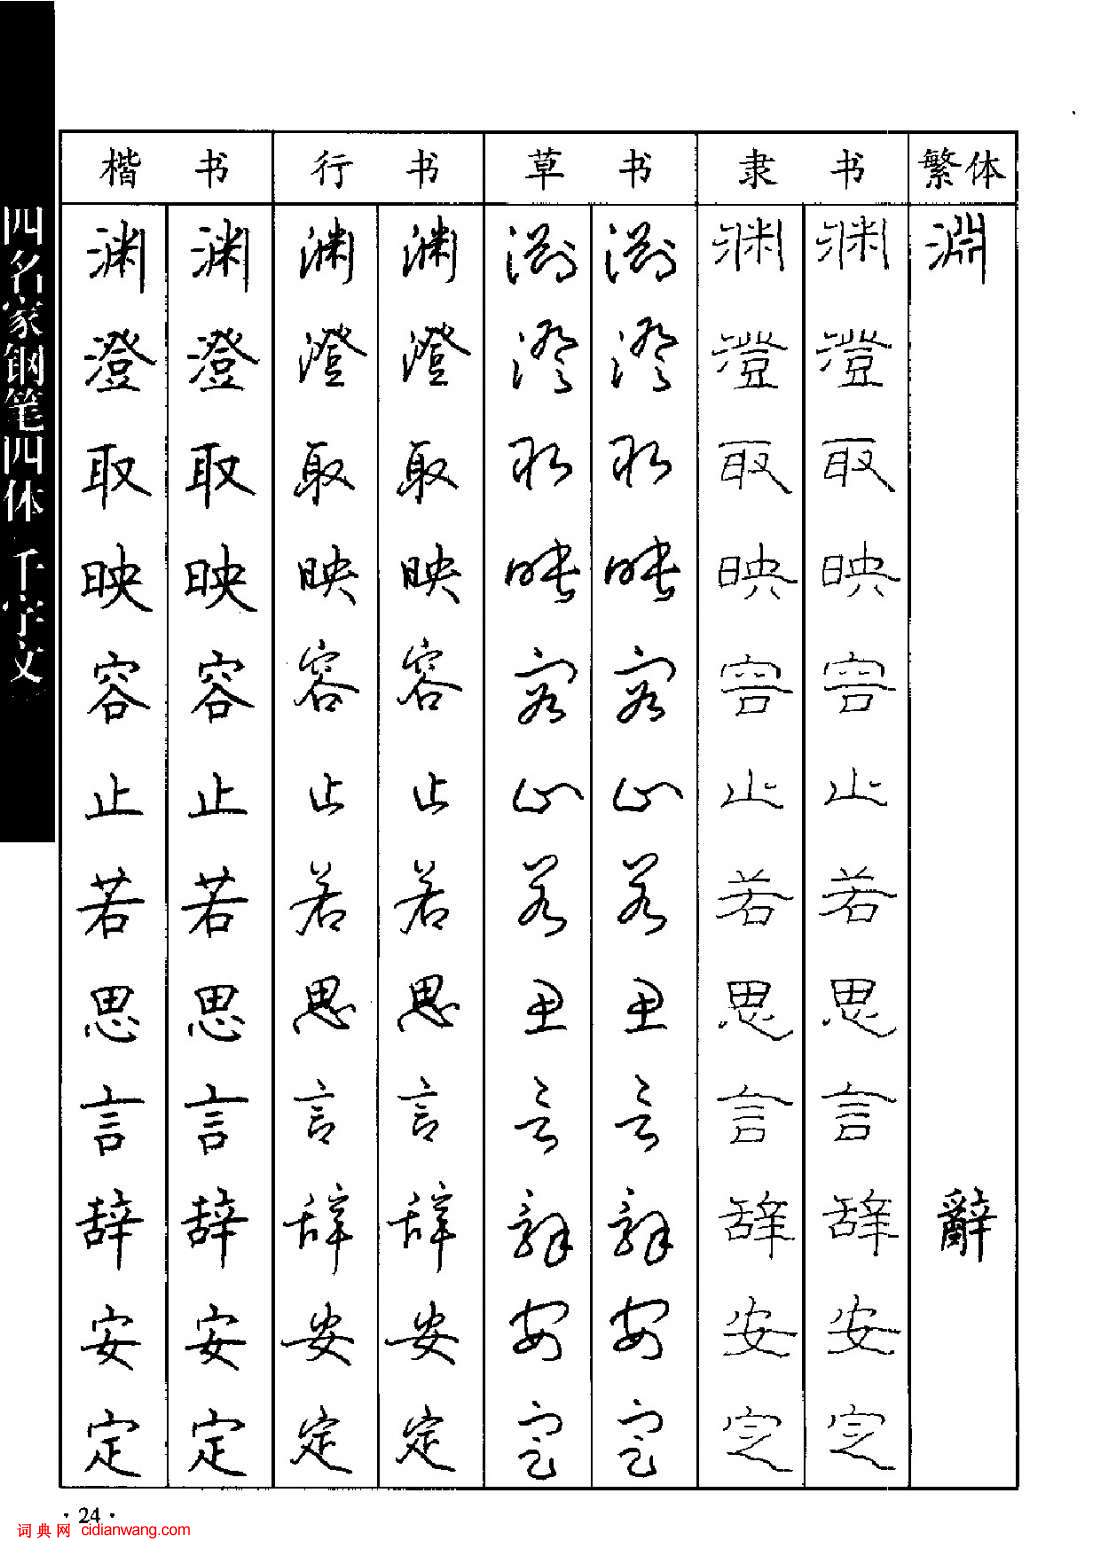 四名家钢笔四体千字文
楷书 行书 草书 隶书 繁体
渊 渊 渊 渊 渊 渊 渊 渊 淵
澄 澄 澄 澄 澄 澄 澄 澄
取 取 取 取 取 取 取 取
映 映 映 映 映 映 映 映
容 容 容 容 容 容 容 容
止 止 止 止 止 止 止 止
若 若 若 若 若 若 若 若
思 思 思 思 思 思 思 思
言 言 言 言 言 言 言 言
辞 辞 辞 辞 辞 辞 辞 辞 辭
安 安 安 安 安 安 安 安
定 定 定 定 定 定 定 定
·24·
词典网 cidianwang.com